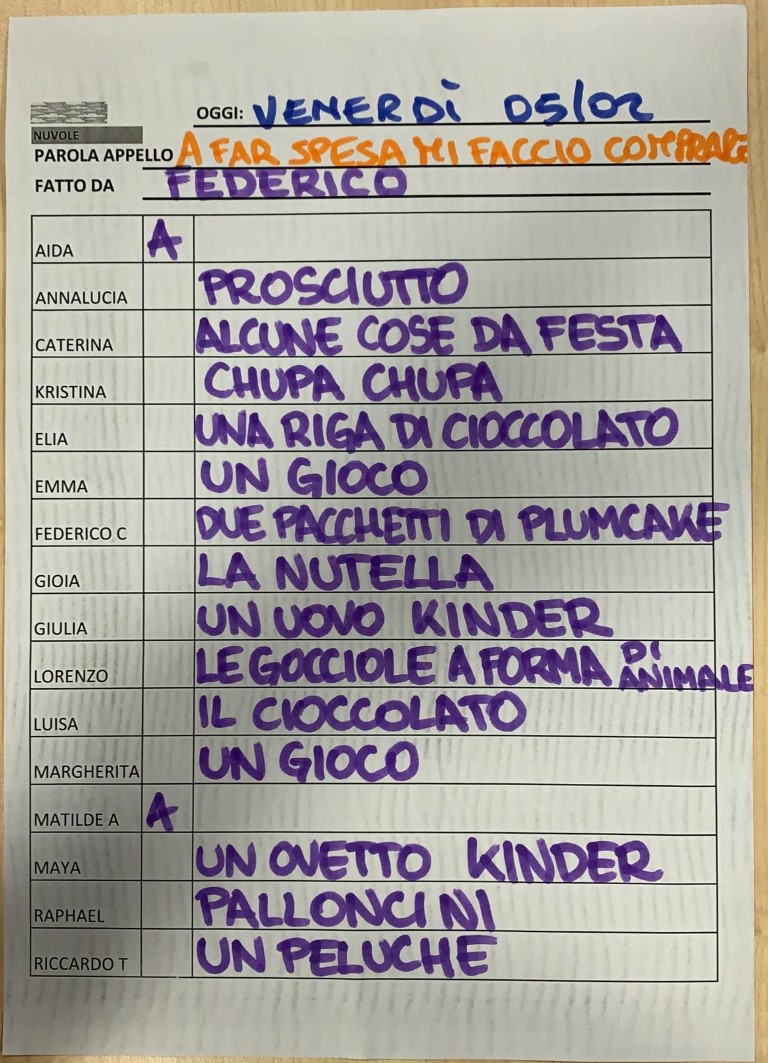 OGGI: VENERDÌ 05/02
NUVOLE
PAROLA APPELLO A FAR SPESA MI FACCIO COMPRARE
FATTO DA FEDERICO
AIDA A
ANNALUCIA PROSCIUTTO
CATERINA ALCUNE COSE DA FESTA
KRISTINA CHUPA CHUPA
ELIA UNA RIGA DI CIOCCOLATO
EMMA UN GIOCO
FEDERICO C DUE PACCHETTI DI PLUMCAKE
GIOIA LA NUTELLA
GIULIA UN UOVO KINDER
LORENZO LE GOCCIOLE A FORMA DI ANIMALE
LUISA IL CIOCCOLATO
MARGHERITA UN GIOCO
MATILDE A A
MAYA UN OVETTO KINDER
RAPHAEL PALLONCINI
RICCARDO T UN PELUCHE